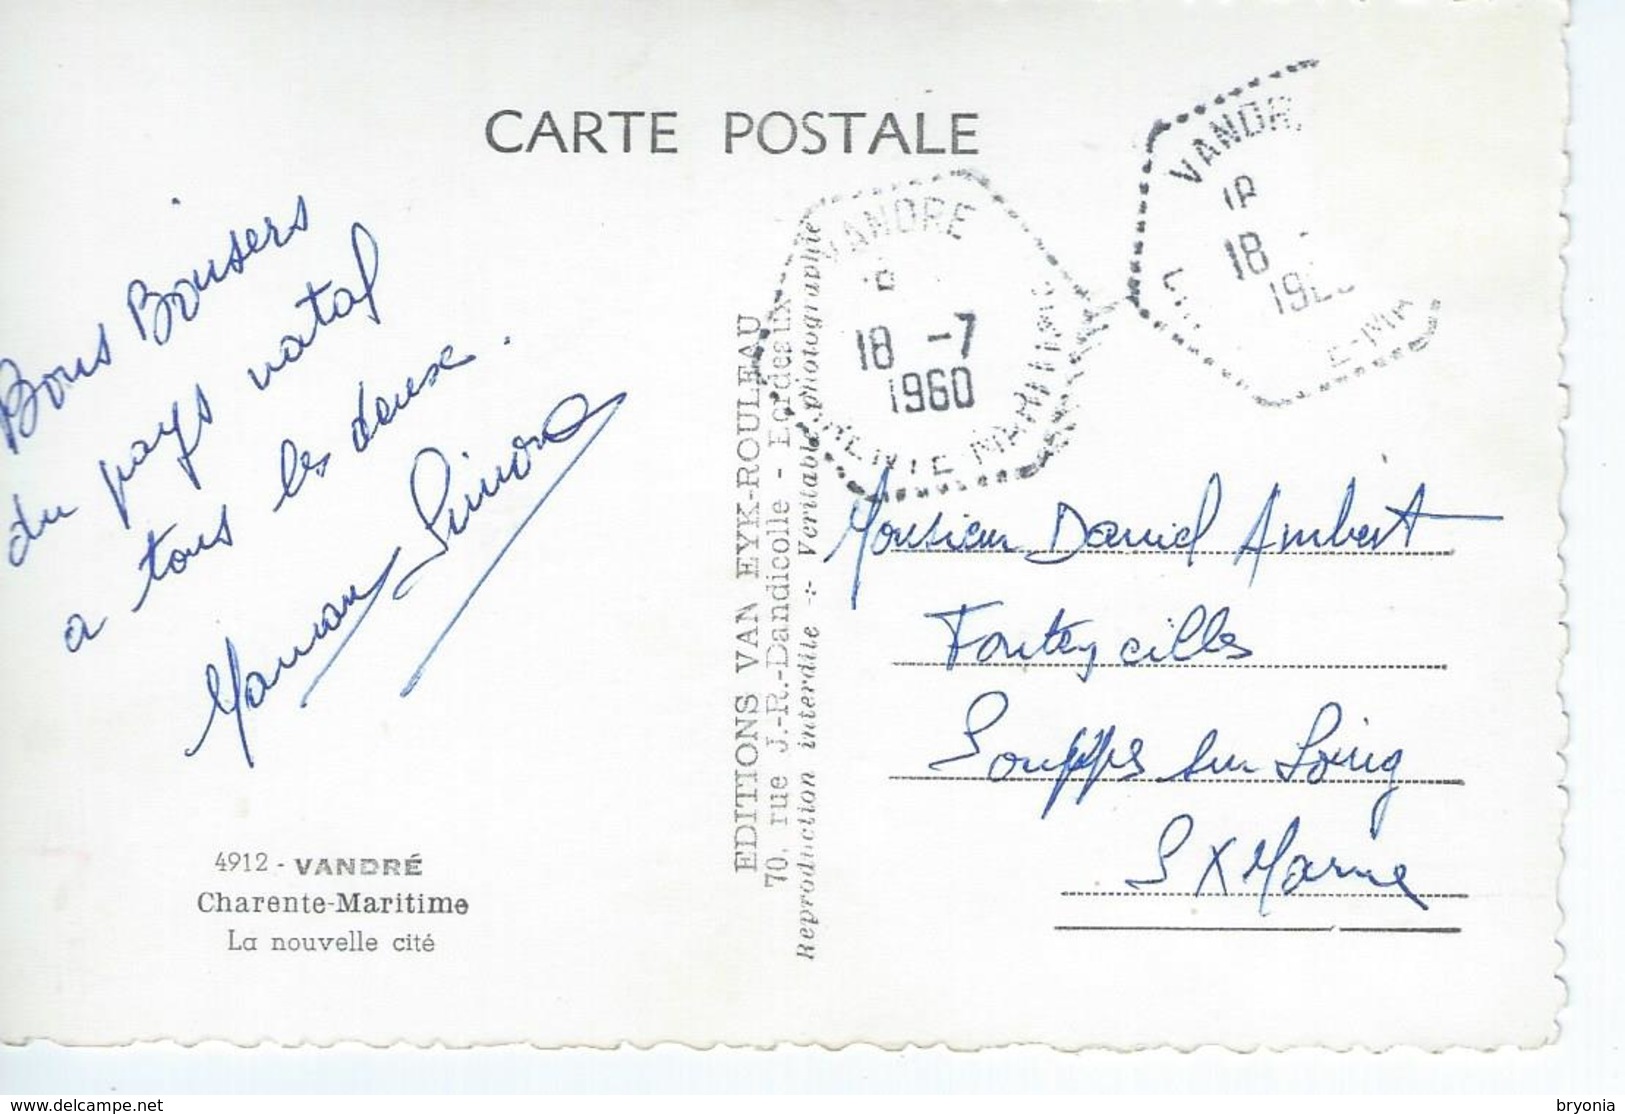 CARTE POSTALE
Bons Baisers
du pays natal
a tous les deux.
Maman Simone
4912 - VANDRÉ
Charente-Maritime
La nouvelle cité
EDITIONS VAN EYK-ROULEAU
70, rue J.-R.-Dandicolle - Bordeaux
Reproduction interdite ÷ Véritable photographie
VANDRE
18 -7
1960
CHARENTE MARITIME
VANDR
18
18 -
19
E-MA
Monsieur Daniel Ambert
Souppes sur Loing
S X Marne
delcampe.net
bryonia